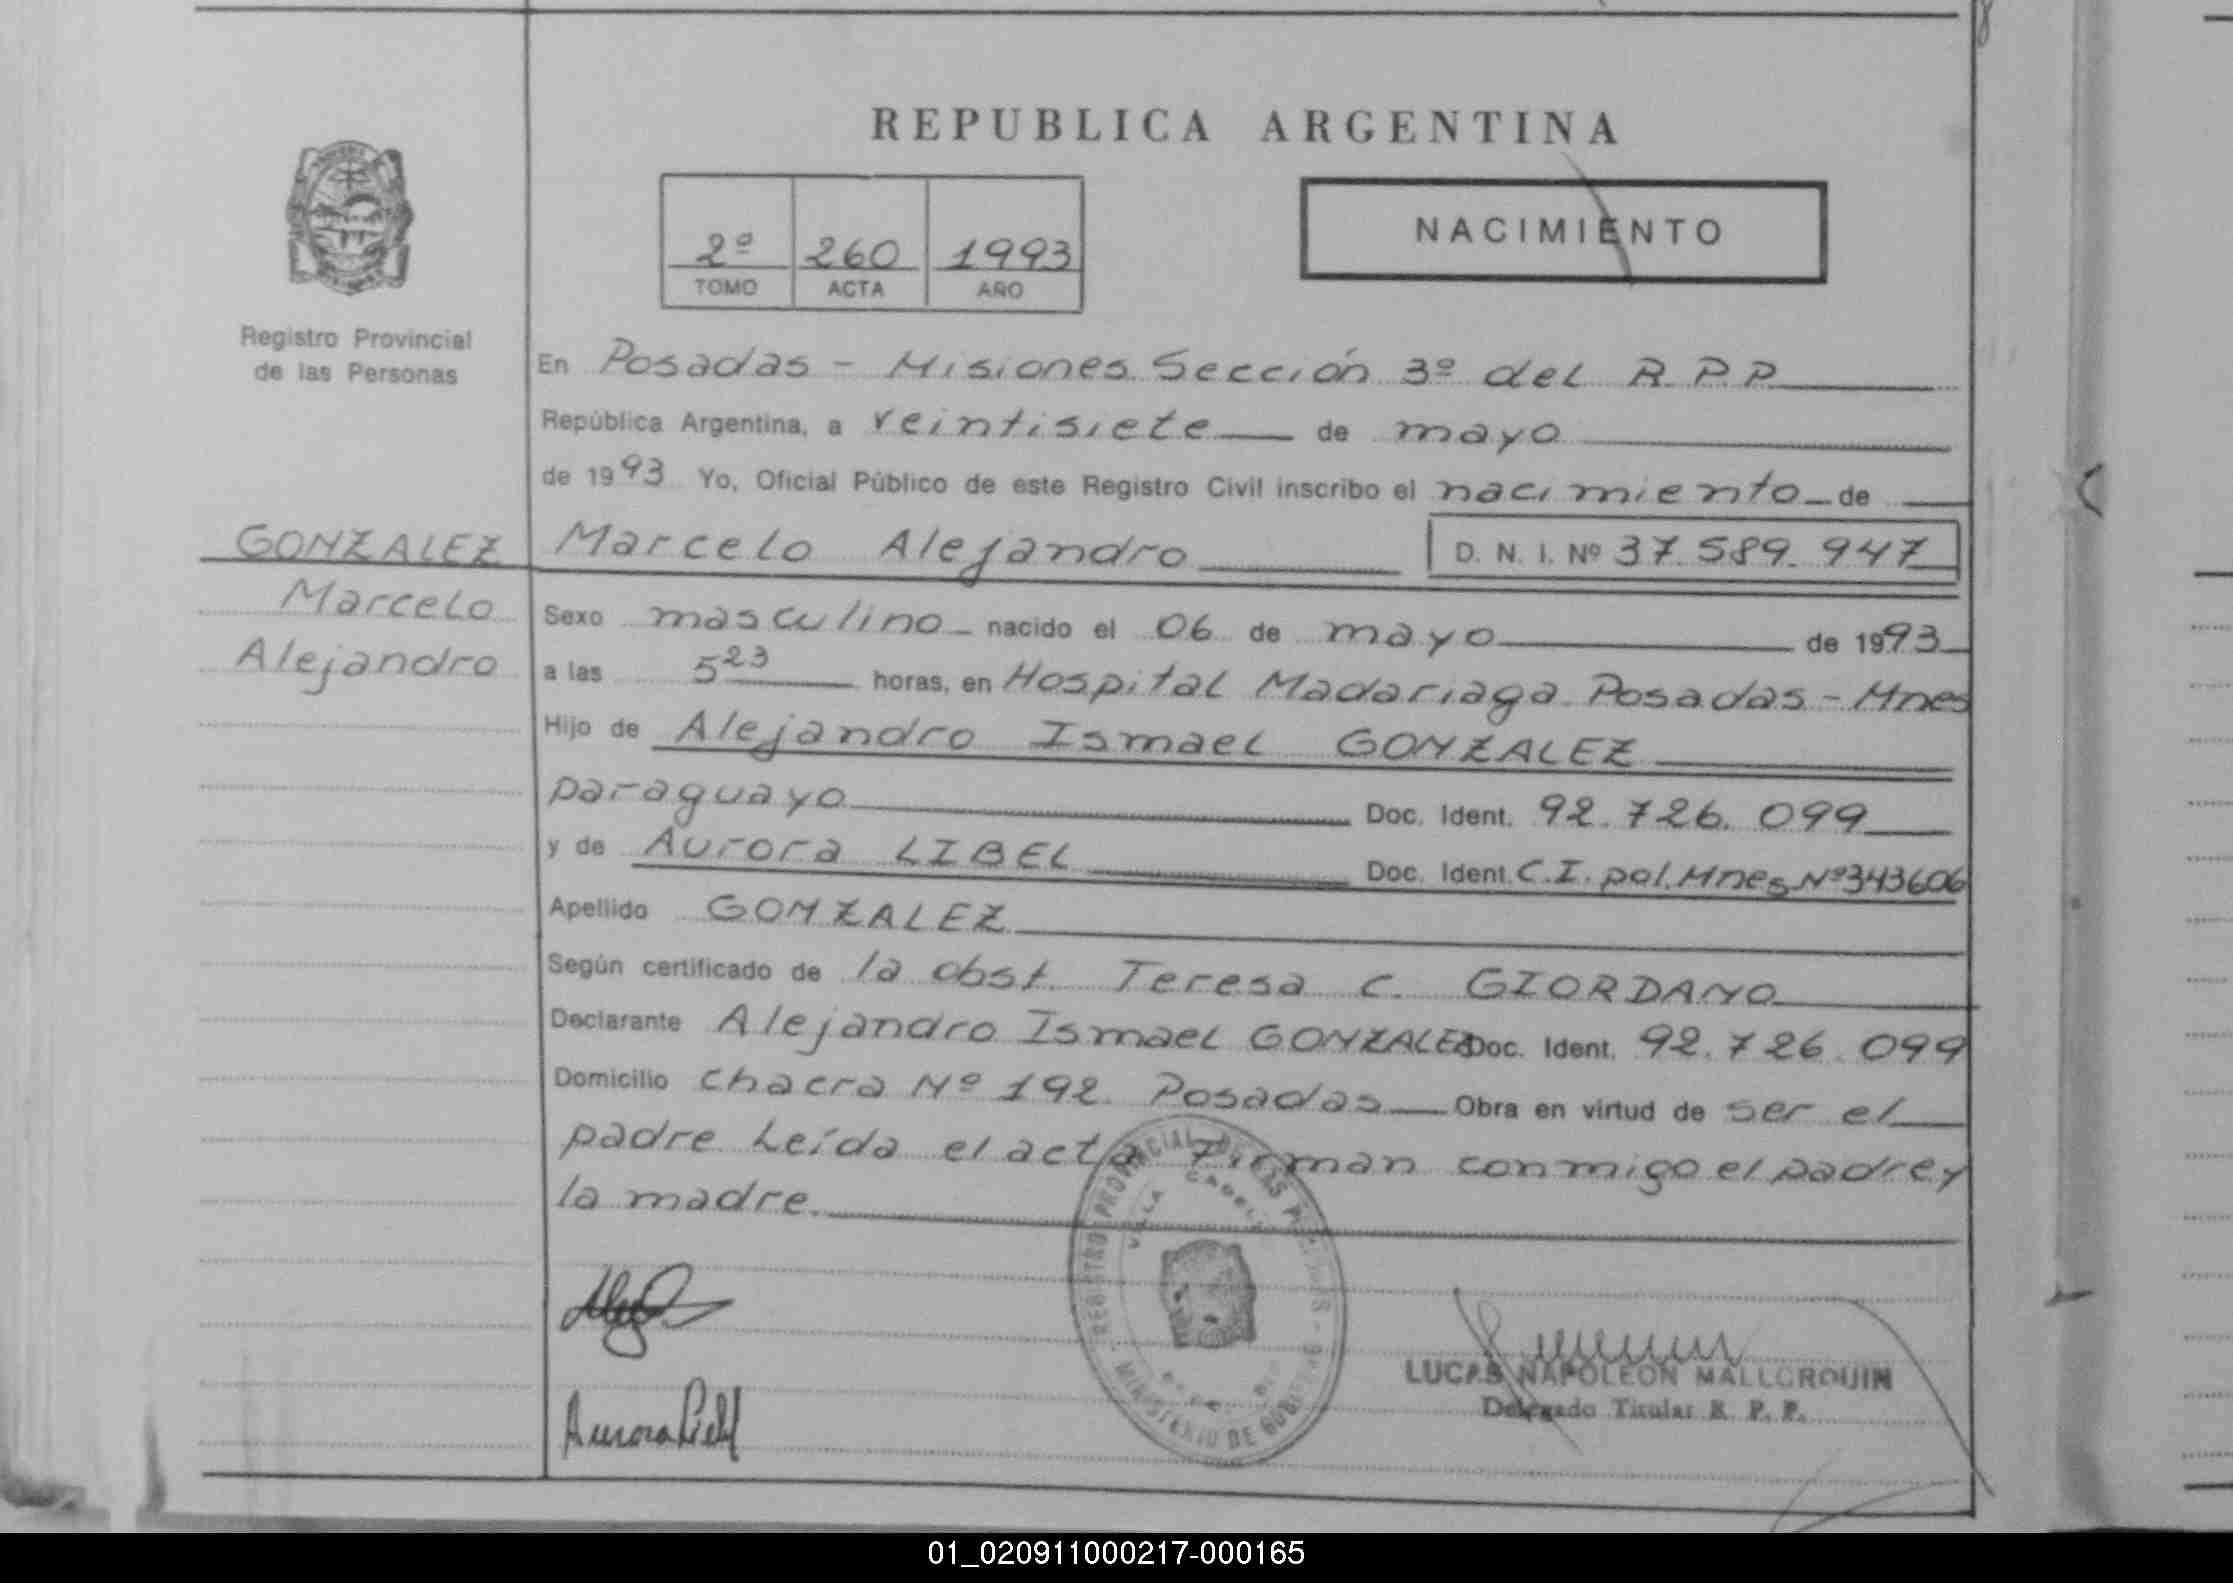 REPUBLICA ARGENTINA
2º 260 1993
TOMO ACTA AÑO
NACIMIENTO
Registro Provincial
de las Personas
En Posadas - Misiones Sección 3º del R.P.P.
República Argentina, a veintisiete de mayo
de 1993 Yo, Oficial Público de este Registro Civil inscribo el nacimiento de
GONZALEZ
Marcelo
Alejandro
Marcelo Alejandro D. N. I. Nº 37.589.947
Sexo masculino nacido el 06 de mayo de 1993
a las 5 23 horas, en Hospital Madariaga Posadas - Mnes
Hijo de Alejandro Ismael GONZALEZ
paraguayo Doc. Ident. 92.726.099
y de Aurora LIBEL Doc. Ident. C.I. pol. Mnes Nº 343606
Apellido GONZALEZ
Según certificado de la obst. Teresa C. GIORDANO
Declarante Alejandro Ismael GONZALEZ Doc. Ident. 92.726.099
Domicilio chacra Nº 192. Posadas Obra en virtud de ser el
padre Leída el acta Firman conmigo el padre y
la madre.
REGISTRO PROVINCIAL DE LAS PERSONAS
VILLA
MINISTERIO DE
LUCAS NAPOLEON MALLORQUIN
Delegado Titular R. P. P.
Aurora
01_020911000217-000165